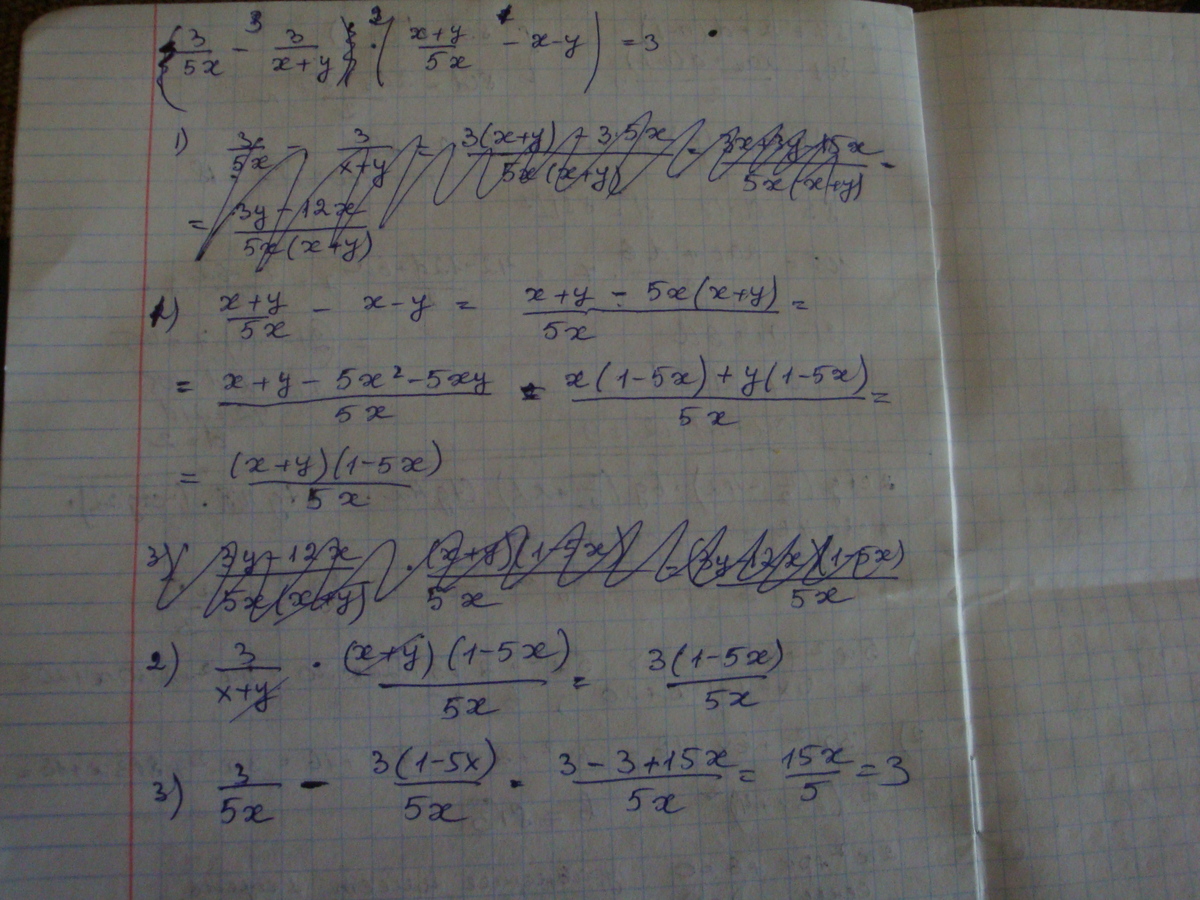 3/5x - 3/(x+y) · ((x+y)/5x - x-y) = 3
1) 3/5x - 3/(x+y) = (3(x+y) - 3·5x)/(5x(x+y)) = (3x+3y-15x)/(5x(x+y)) =
= (3y-12x)/(5x(x+y))
1) (x+y)/5x - x-y = (x+y - 5x(x+y))/5x =
= (x+y-5x²-5xy)/5x = (x(1-5x)+y(1-5x))/5x =
= ((x+y)(1-5x))/5x
3) (3y-12x)/(5x(x+y)) · ((x+y)(1-5x))/5x = ((3y-12x)(1-5x))/5x
2) 3/(x+y) · ((x+y)(1-5x))/5x = 3(1-5x)/5x
3) 3/5x - 3(1-5x)/5x = (3-3+15x)/5x = 15x/5 = 3